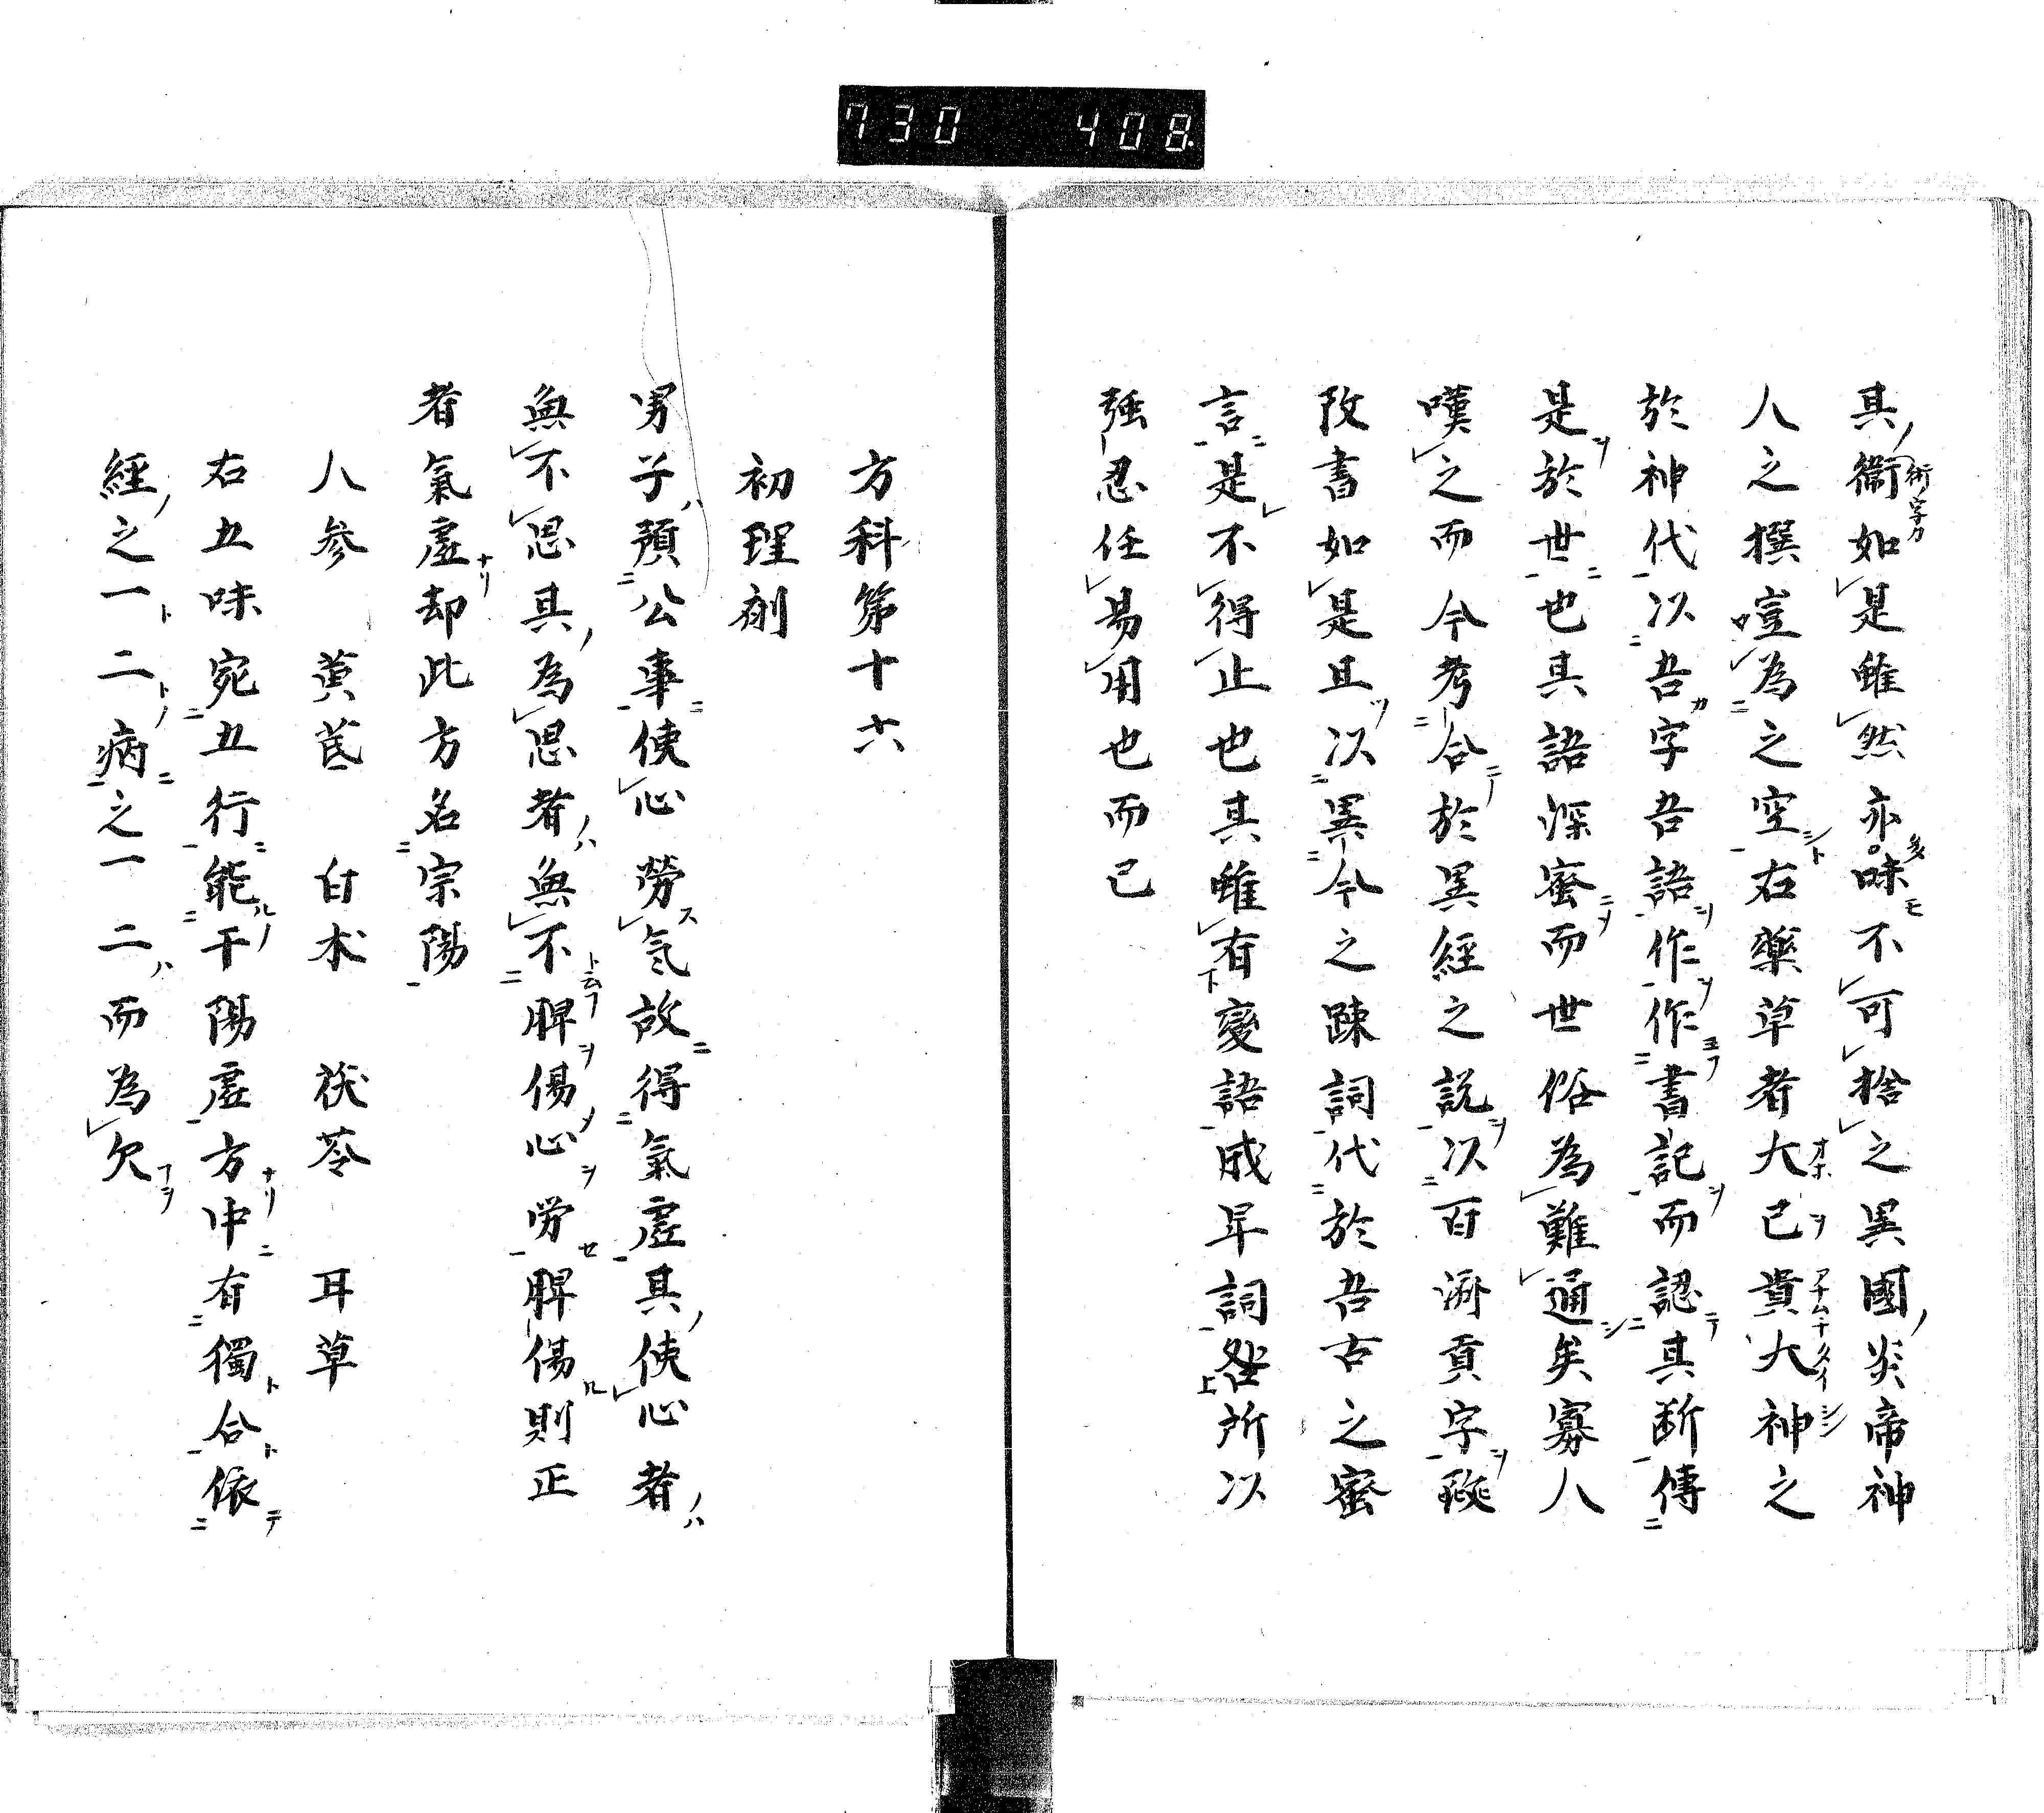 730 408
其衞如是雖然亦多味不可捨之異國炎帝神
人之撰豈為之空右藥草者大已貴大神之
於神代以吾字吾語作作書記而認其断傳
是於世也其語深蜜而世俗為難通矣寡人
嘆之而今考合於異經之説以百濟貢字
改書如是且以異今之疎詞代於吾古之蜜
言是不得止也其雖有變語成年詞所以
強忍任易用也而已
方科第十六
初理剤
男子預公事使心勞氣故得氣虛其使心者
無不思其為思者無不脾傷心労脾傷則正
者氣虛却此方名宗陽
人参 黄芪 白朮 茯苓 耳草
右五味宛五行能干陽虛方中有獨合依
經之一二病之一二而為欠